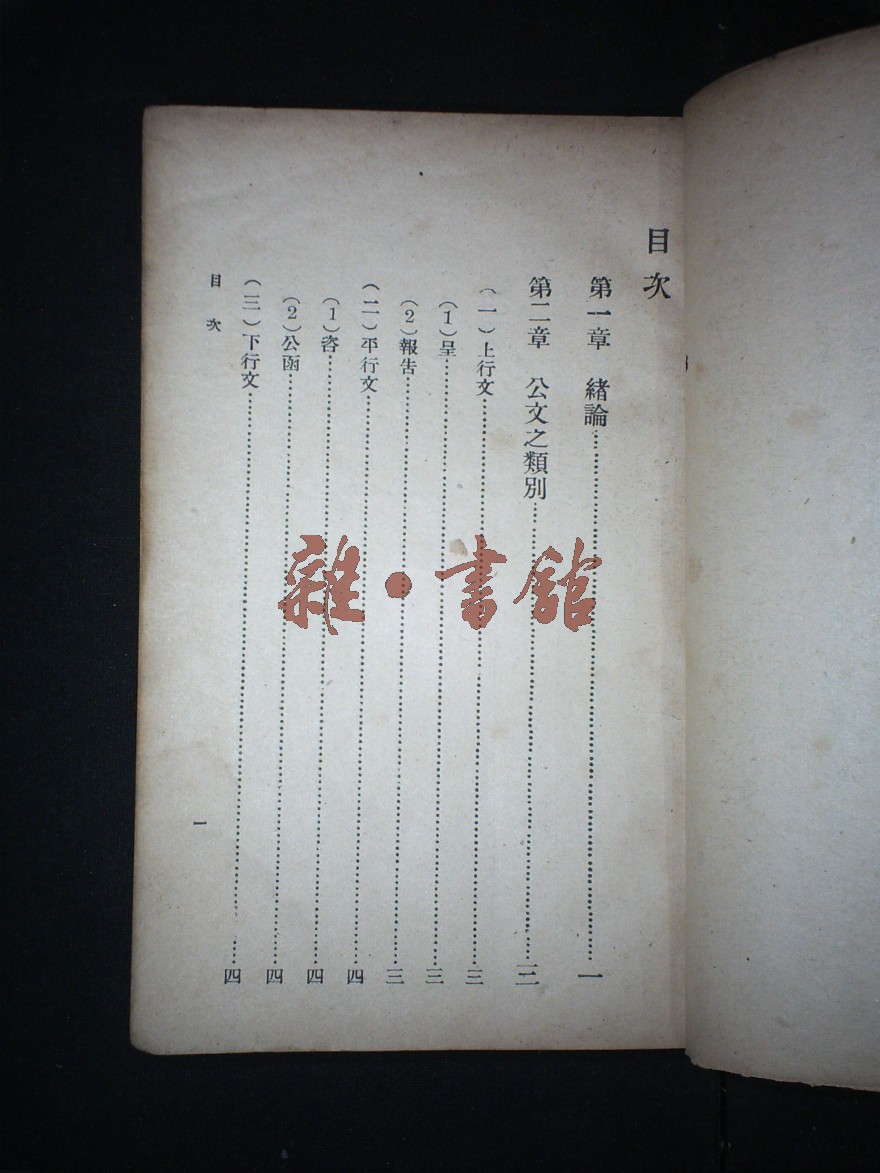 目次
第一章　緒論……一
第二章　公文之類別……三
(一)上行文……三
(1)呈……三
(2)報告……三
(二)平行文……四
(1)咨……四
(2)公函……四
(三)下行文……四
目次
一
雜·書館